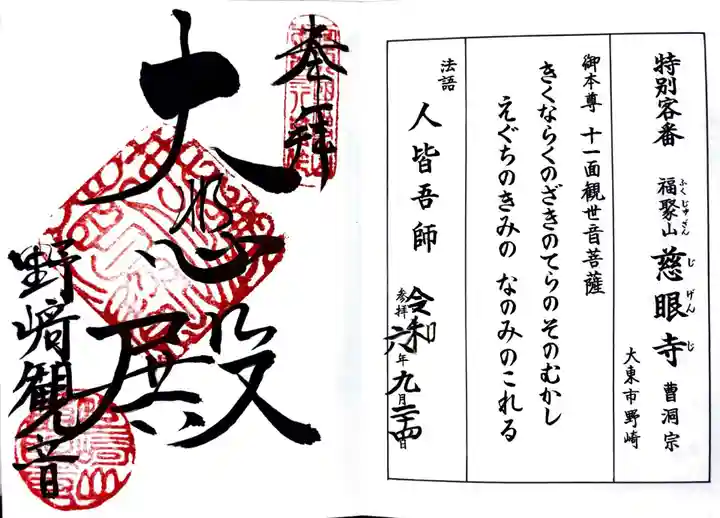 特別客番 福聚山 慈眼寺 曹洞宗
ふくじゅざん じげんじ
大東市野崎
御本尊 十一面観世音菩薩
きくならくのざきのてらのそのむかし
えぐちのきみの なのみのこれる
法語 人皆吾師
参拝 令和六年九月二十四日
奉拝
大悲殿
野﨑観音